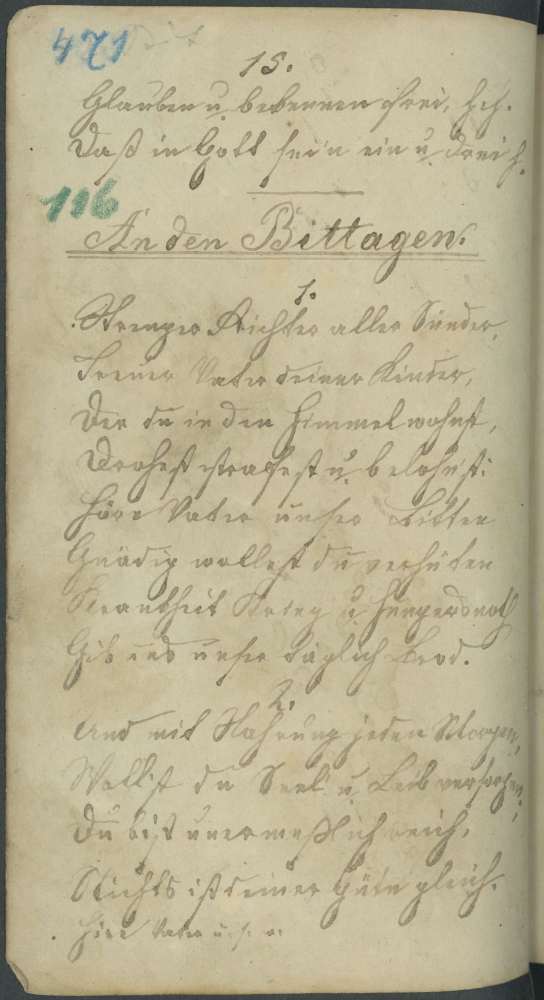 471
15.
Glauben u. bekennen frei, hlg.
Daß in Gott sein ein u. drei h.
116
An den Bittagen.
1.
Strenger Richter aller Sünder,
Treuer Vater deiner Kinder,
Der du in den Himmel wohnst,
Drohest strafest u. belohnst:
Höre Vater unser Bitten
Gnädig wollest du verhüten
Krankheit Krieg u. Hungersnoth
Gib uns unser täglich Brod.
2.
Und mit Nahrung jeden Morgen,
Wollst du Seel u. Leib versorgen,
Du bist unermeßlich reich,
Nichts ist deiner Güte gleich.
Höre Vater u. s. w.